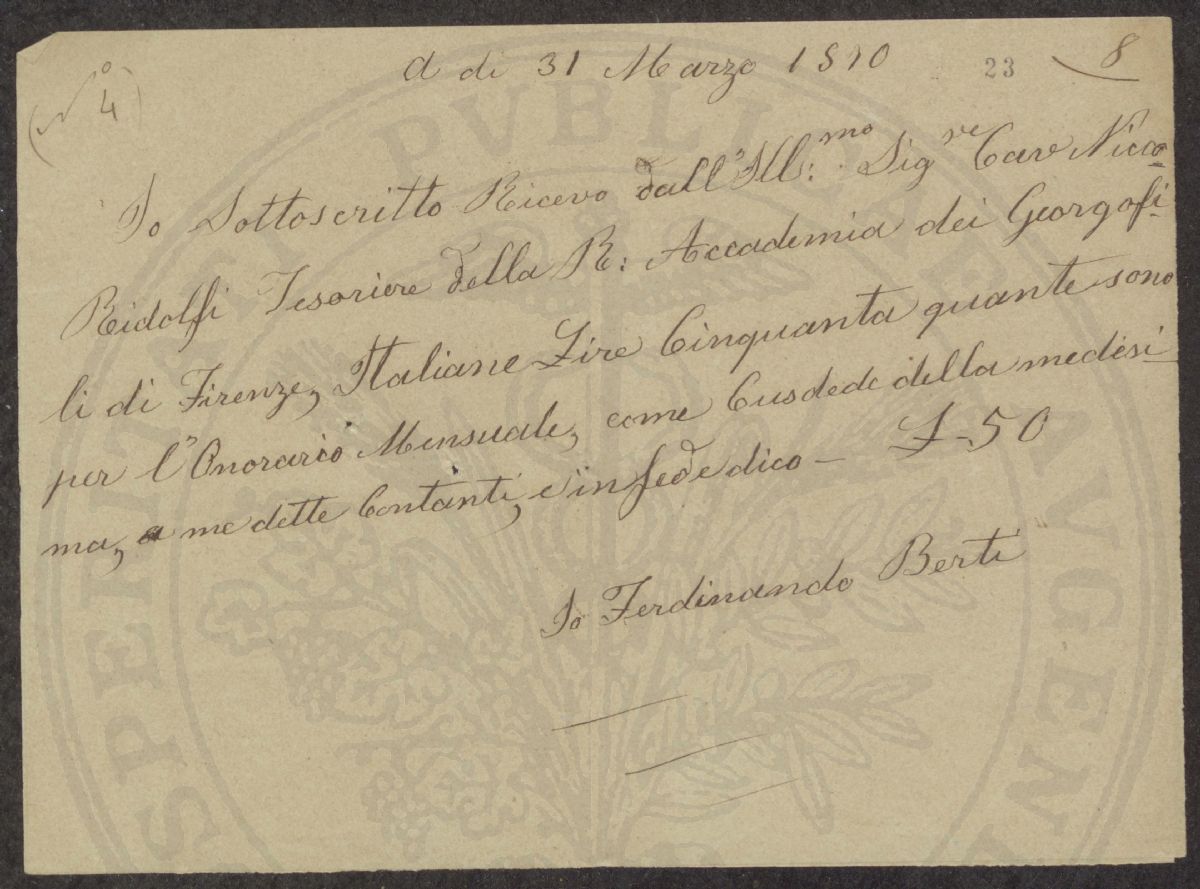 (N° 4)
A di 31 Marzo 1890
23
8
Io Sottoscritto Ricevo dall'Ill:mo Sigre Cav Nicco
Ridolfi Tesoriere della R: Accademia dei Georgofi
li di Firenze, Italiane Lire Cinquanta quante sono
per l'Onorario Mensuale, come Cusdede della medesi
ma, a me dette Contanti, e in fede dico — £-50
Io Ferdinando Berti
PROSPERITATI PVBLICAE AVGENDAE